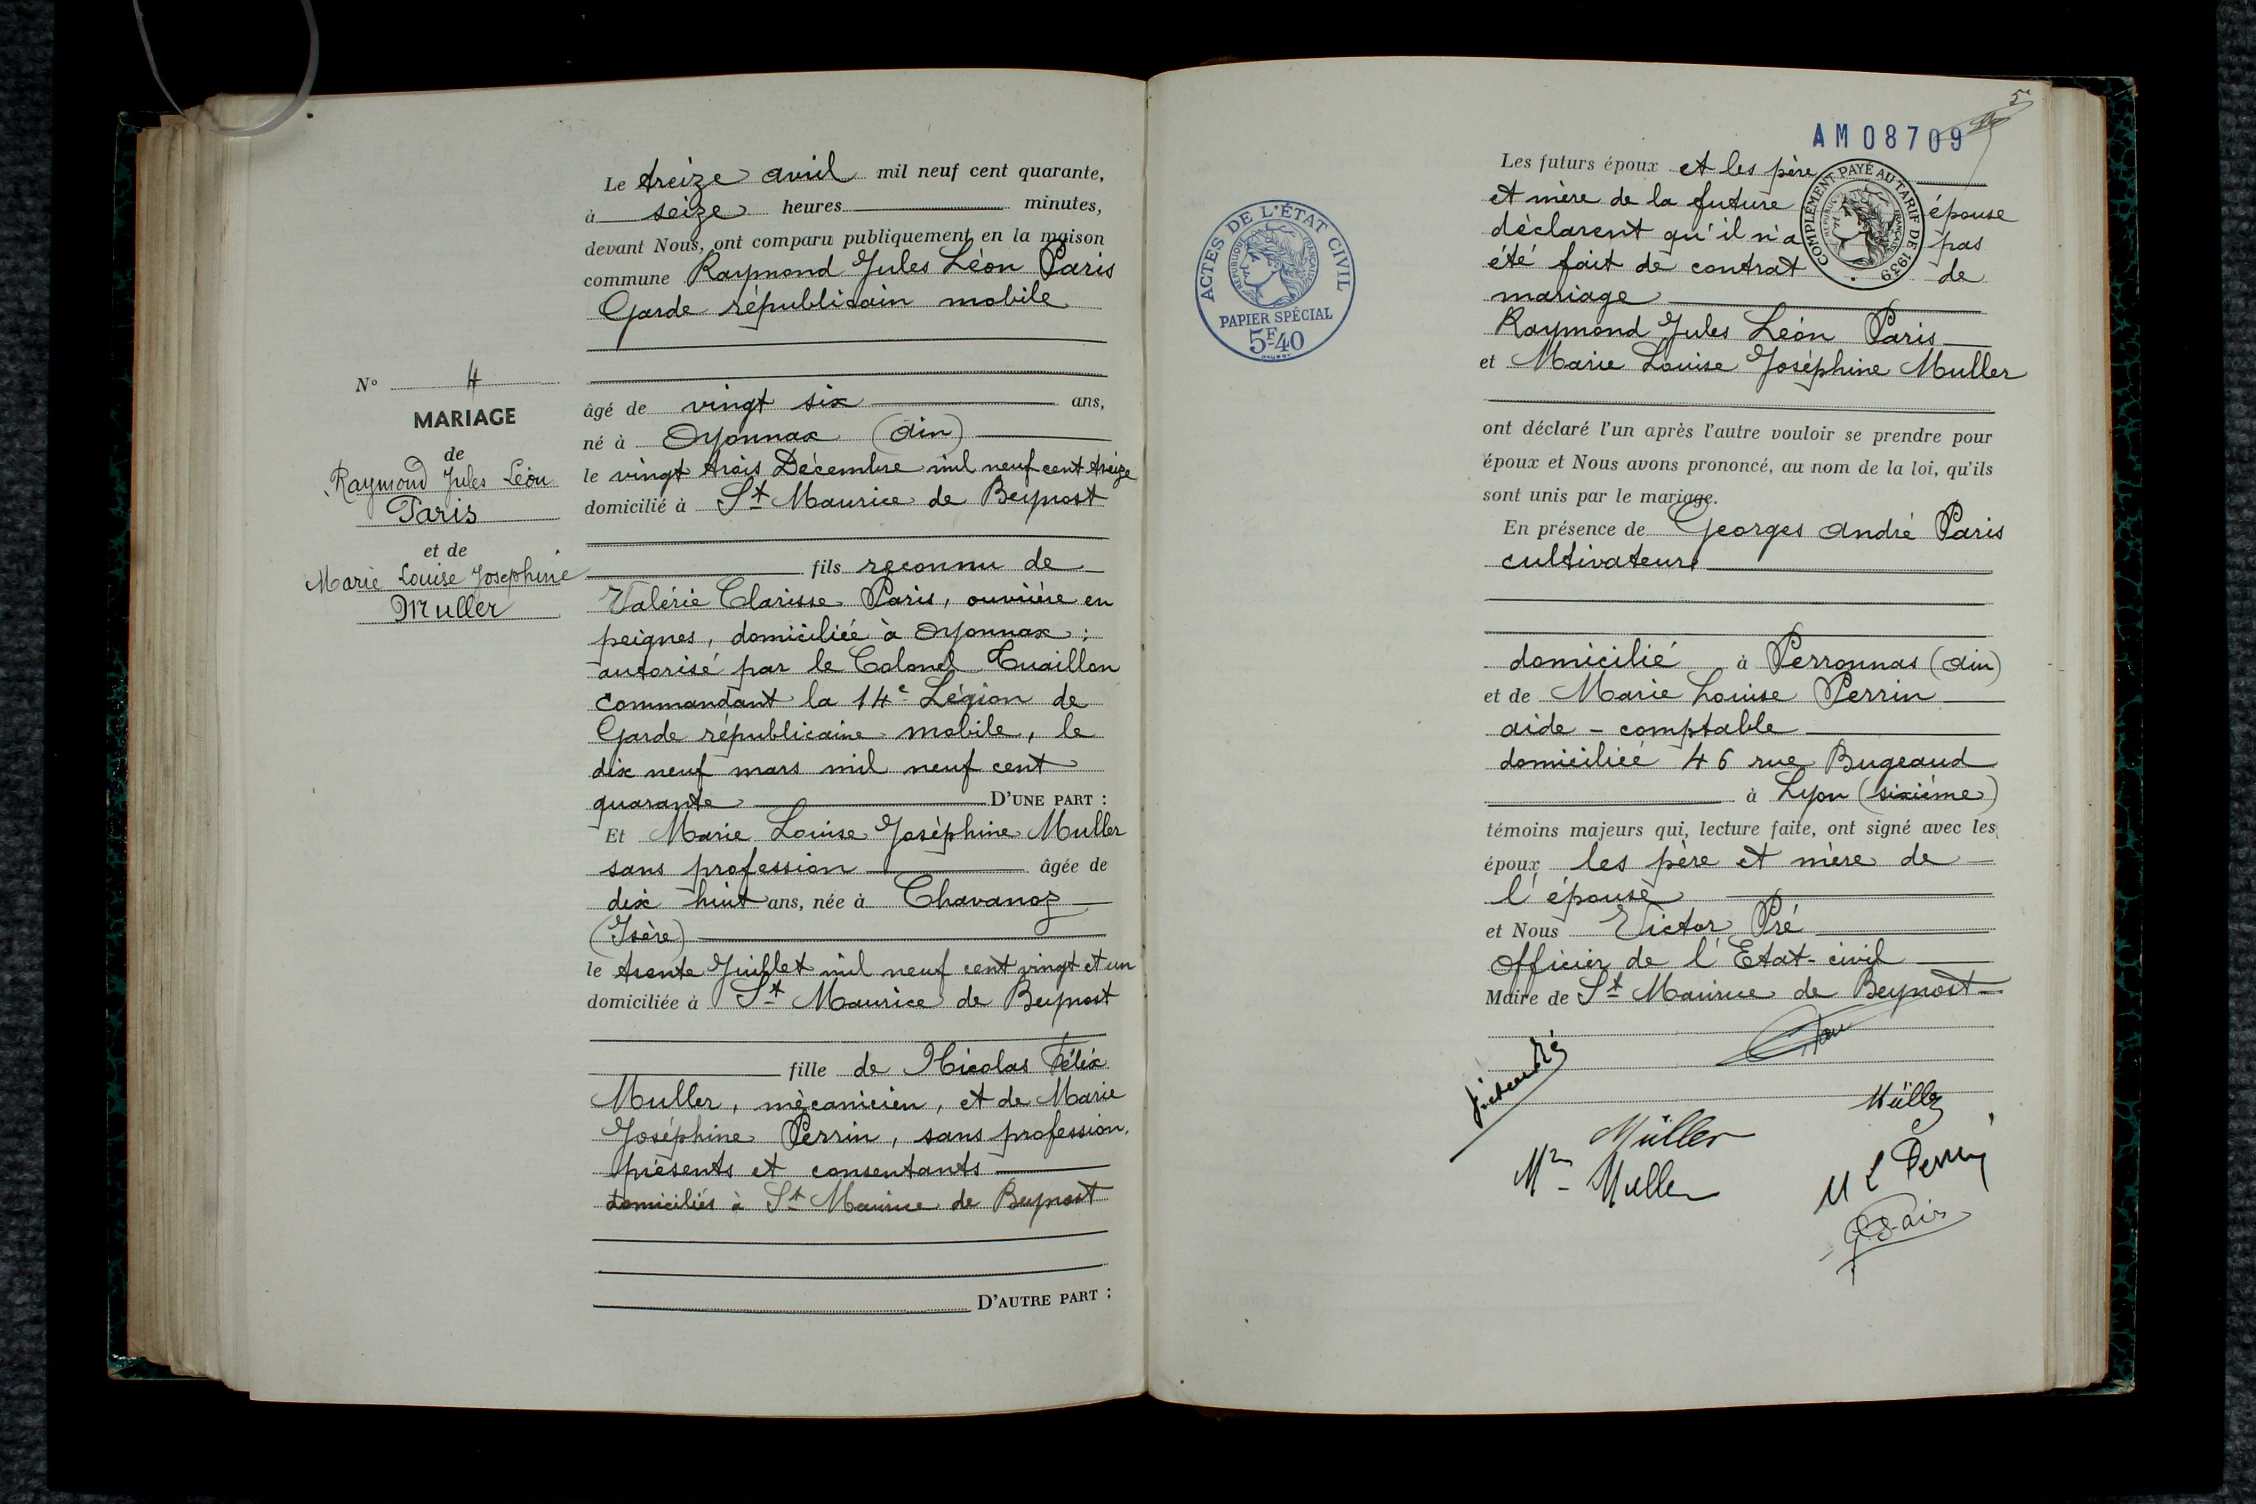 Le treize avril mil neuf cent quarante,
à seize heures minutes,
devant Nous, ont comparu publiquement en la maison
commune Raymond Jules Léon Paris
Garde républicain mobile
N° 4
MARIAGE
de
Raymond Jules Léon
Paris
et de
Marie Louise Josephine
Muller
âgé de vingt six ans,
né à Oyonnax (Ain)
le vingt trois Décembre mil neuf cent treize
domicilié à St Maurice de Beynost
fils reconnu de
Valérie Clarisse Paris, ouvrière en
peignes, domiciliée à Oyonnax;
autorisé par le Colonel Cuaillon
commandant la 14e Légion de
Garde républicaine mobile, le
dix neuf mars mil neuf cent
quarante D'UNE PART :
Et Marie Louise Joséphine Muller
sans profession âgée de
dix huit ans, née à Chavanoz
(Isère)
le trente Juillet mil neuf cent vingt et un
domiciliée à St Maurice de Beynost
fille de Nicolas Félix
Muller, mécanicien, et de Marie
Joséphine Perrin, sans profession,
présents et consentants
domiciliés à St Maurice de Beynost
D'AUTRE PART :
ACTES DE L'ÉTAT CIVIL
RÉPUBLIQUE FRANÇAISE
PAPIER SPÉCIAL
5F40
5
AM08709
COMPLÉMENT PAYÉ AU TARIF DE 1939
RÉPUBLIQUE FRANÇAISE
Les futurs époux et les père
et mère de la future épouse
déclarent qu'il n'a pas
été fait de contrat de
mariage
Raymond Jules Léon Paris
et Marie Louise Joséphine Muller
ont déclaré l'un après l'autre vouloir se prendre pour
époux et Nous avons prononcé, au nom de la loi, qu'ils
sont unis par le mariage.
En présence de Georges André Paris
cultivateur
domicilié à Perronnas (Ain)
et de Marie Louise Perrin
aide-comptable
domiciliée 46 rue Bugeaud
à Lyon (sixième)
témoins majeurs qui, lecture faite, ont signé avec les
époux les père et mère de
l'épouse
et Nous Victor Pré
Officier de l'Etat-civil
Maire de St Maurice de Beynost
Victor Pré
Müller
Müller
Mme Muller
M L Perrin
G Paris